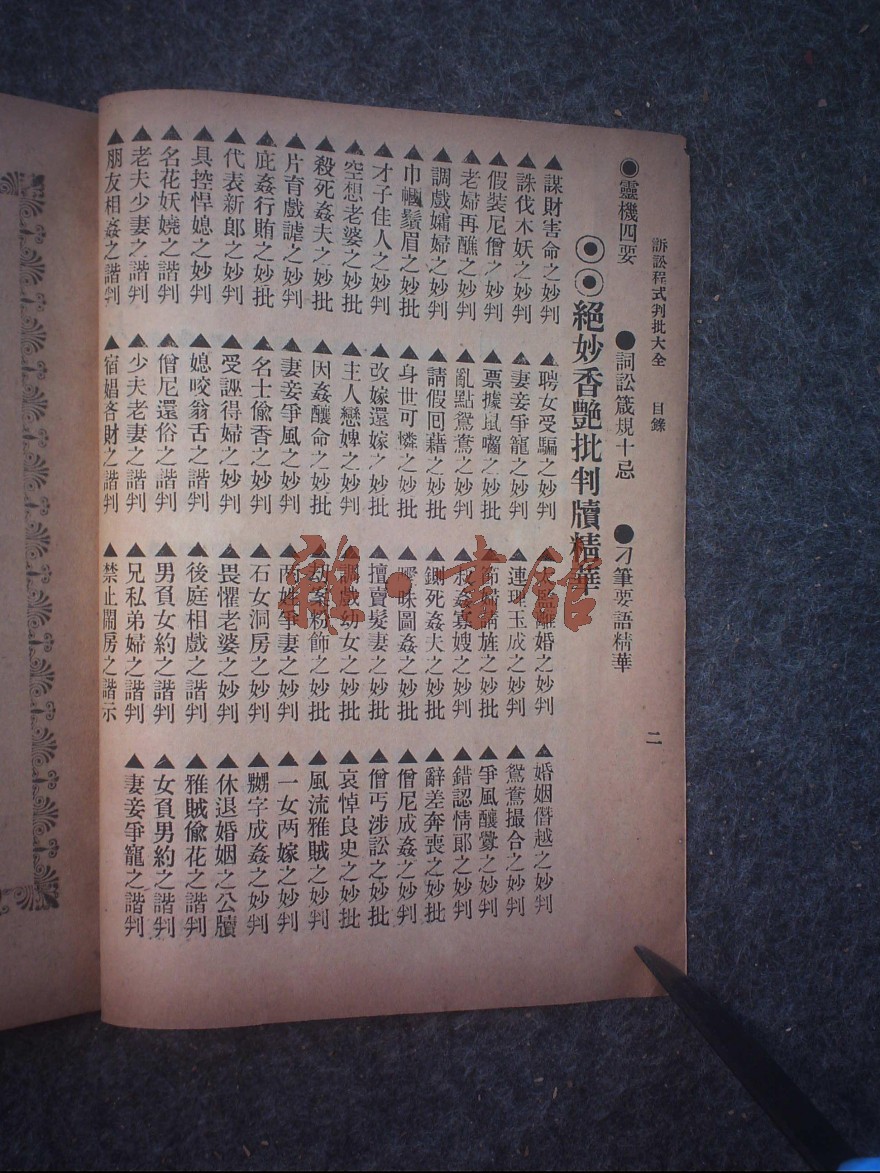 訴訟程式判批大全 目錄 二
●靈機四要 ●詞訟箴規十忌 ●刁筆要語精華
◉◉絕妙香艷批判牘精華
▲謀財害命之妙判 ▲聘女受騙之妙判 離婚之妙判 ▲婚姻僭越之妙判
▲誅伐木妖之妙判 ▲妻妾爭寵之妙判 ▲連理玉成之妙判 ▲鴛鴦撮合之妙判
▲假裝尼僧之妙判 ▲票據鼠囓之妙判 ▲節婦請旌之妙判 ▲爭風釀釁之妙判
▲老婦再醮之妙判 ▲亂點鴛鴦之妙判 ▲叔姦寡嫂之妙判 ▲錯認情郎之妙判
▲調戲孀婦之妙判 ▲請假回籍之妙批 ▲鍘死姦夫之妙判 ▲辭差奔喪之妙批
▲巾幗鬚眉之妙判 ▲身世可憐之妙批 ▲曖昧圖姦之妙批 ▲僧尼成姦之妙判
▲才子佳人之妙判 ▲改嫁還嫁之妙批 ▲擅賣髮妻之妙批 ▲僧丐涉訟之妙批
▲空想老婆之妙批 ▲主人戀婢之妙判 ▲調戲幼女之妙判 ▲哀悼良史之妙批
▲殺死姦夫之妙批 ▲因姦釀命之妙批 ▲劫案粉飾之妙批 ▲風流雅賊之妙判
▲片育戲謔之妙判 ▲妻妾爭風之妙判 ▲两姓爭妻之妙判 ▲一女两嫁之妙判
▲庇姦行賄之妙批 ▲名士偸香之妙判 ▲石女洞房之妙判 ▲嬲字成姦之妙判
▲代表新郎之妙判 ▲受誣得婦之妙判 ▲畏懼老婆之妙判 ▲休退婚姻之公牘
▲具控悍媳之妙判 ▲媳咬翁舌之諧判 ▲後庭相戲之諧判 ▲雅賊偸花之諧判
▲名花妖嬈之諧判 ▲僧尼還俗之諧判 ▲男負女約之諧判 ▲女負男約之諧判
▲老夫少妻之諧判 ▲少夫老妻之諧判 ▲兄私弟婦之諧判 ▲妻妾爭寵之諧判
▲朋友相姦之諧判 ▲宿娼吝財之諧判 ▲禁止鬧房之諧示
雜·書館